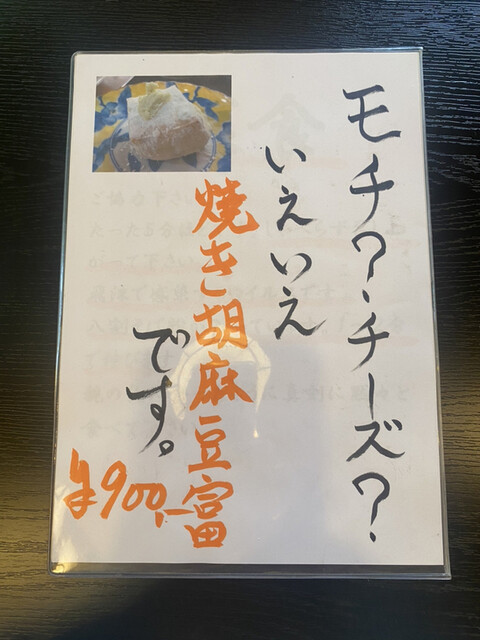 モチ？・チーズ？
いえいえ
焼き胡麻豆富
です。
¥900.-